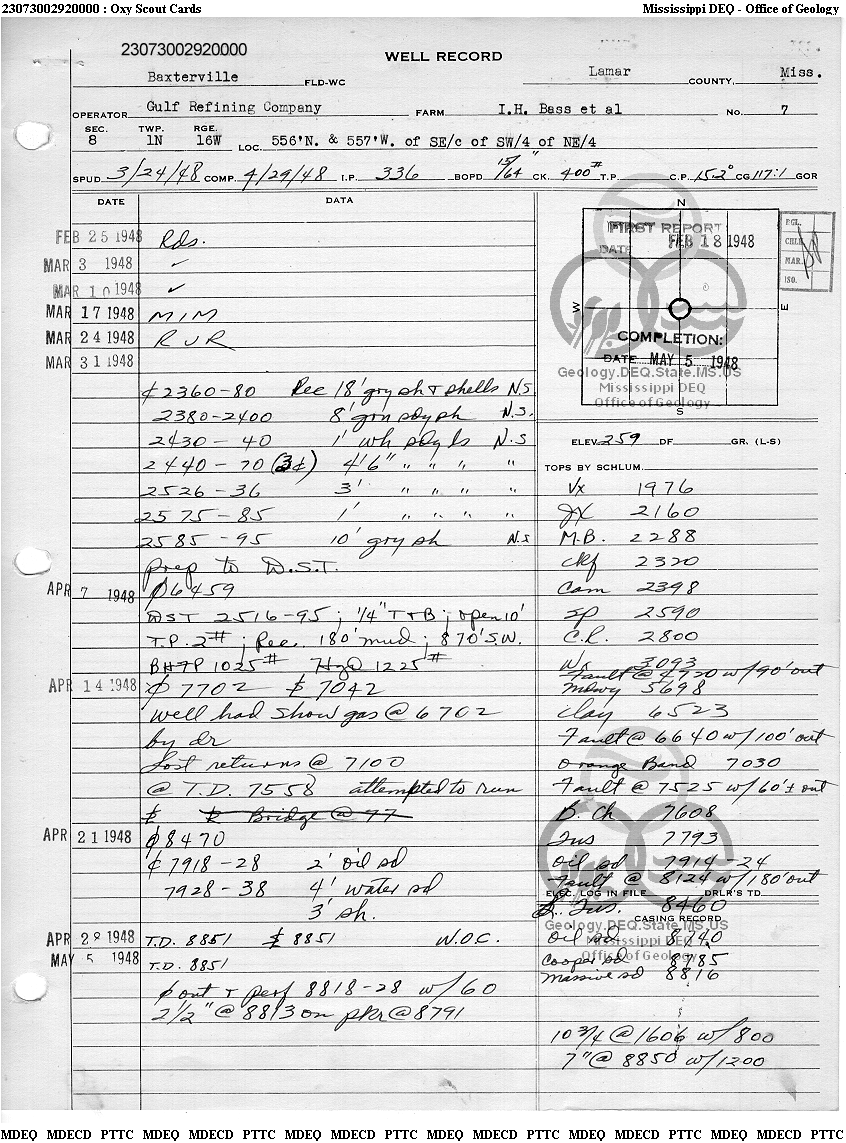 23073002920000 : Oxy Scout Cards Mississippi DEQ - Office of Geology
23073002920000
WELL RECORD
Baxterville FLD-WC Lamar COUNTY, Miss.
OPERATOR Gulf Refining Company FARM I.H. Bass et al No. 7
SEC. 8 TWP. 1N RGE. 16W LOC. 556'N. & 557'W. of SE/c of SW/4 of NE/4
SPUD 3/24/48 COMP. 4/29/48 I.P. 336 BOPD 15/64" CK. 400# T.P. C.P. 15.2° CG 117:1 GOR
DATE DATA
FEB 25 1948 Rds.
MAR 3 1948 ✓
MAR 10 1948 ✓
MAR 17 1948 M I M
MAR 24 1948 R U R
MAR 31 1948
¢ 2360-80 Rec 18' gry sh & shells N.S.
2380-2400 8' grn sdy sh N.S.
2430 - 40 1' wh sdy ls N.S
2440 - 70 (3¢) 4'6" " " " "
2526 - 36 3' " " " "
2575 - 85 1' " " " "
2585 - 95 10' gry sh N.S
prep to D.S.T.
APR 7 1948 ϕ 6459
DST 2516-95; 1/4" T & B; open 10'
T.P. 2#; Rec. 180' mud; 870' S.W.
BHFP 1025# Hyd 1225#
APR 14 1948 ϕ 7702 7042
well had show gas @ 6702
by dr
Lost returns @ 7100
@ T.D. 7558 attempted to run
Bridge @ 77
APR 21 1948 ϕ 8470
¢ 7918-28 2' oil sd
7928-38 4' water sd
3' sh.
APR 28 1948 T.D. 8851 8851 W.O.C.
MAY 5 1948 T.D. 8851
ϕ out & perf 8818-28 w/60
2 1/2" @ 8813 on pkr @ 8791
N
FIRST REPORT
DATE FEB 18 1948
W E
COMPLETION:
DATE MAY 5 1948
S
Geology.DEQ.State.MS.US
Mississippi DEQ
Office of Geology
RGL.
CHLB
MAR.
ISO.
ELEV. 259 DF. GR. (L-S)
TOPS BY SCHLUM.
Vx 1976
JX 2160
M.B. 2288
ckf 2320
Cam 2398
Sp 2590
C.R. 2800
Wx 3093
Fault @ 4720 w/90' out
Mdwy 5698
Clay 6523
Fault @ 6640 w/100' out
Orange Band 7030
Fault @ 7525 w/60'± out
B. Ch 7608
Tus 7793
Oil sd 7914-24
Fault @ 8124 w/180' out
ELEC. LOG IN FILE DRLR'S TD
L. Tus. 8460
CASING RECORD
Geology.DEQ.State.MS.US
Mississippi DEQ
Office of Geology
Oil sd 8740
Cooper sd 8785
Massive sd 8816
10 3/4 @ 1606 w/800
7" @ 8850 w/1200
MDEQ MDECD PTTC MDEQ MDECD PTTC MDEQ MDECD PTTC MDEQ MDECD PTTC MDEQ MDECD PTTC MDEQ MDECD PTTC